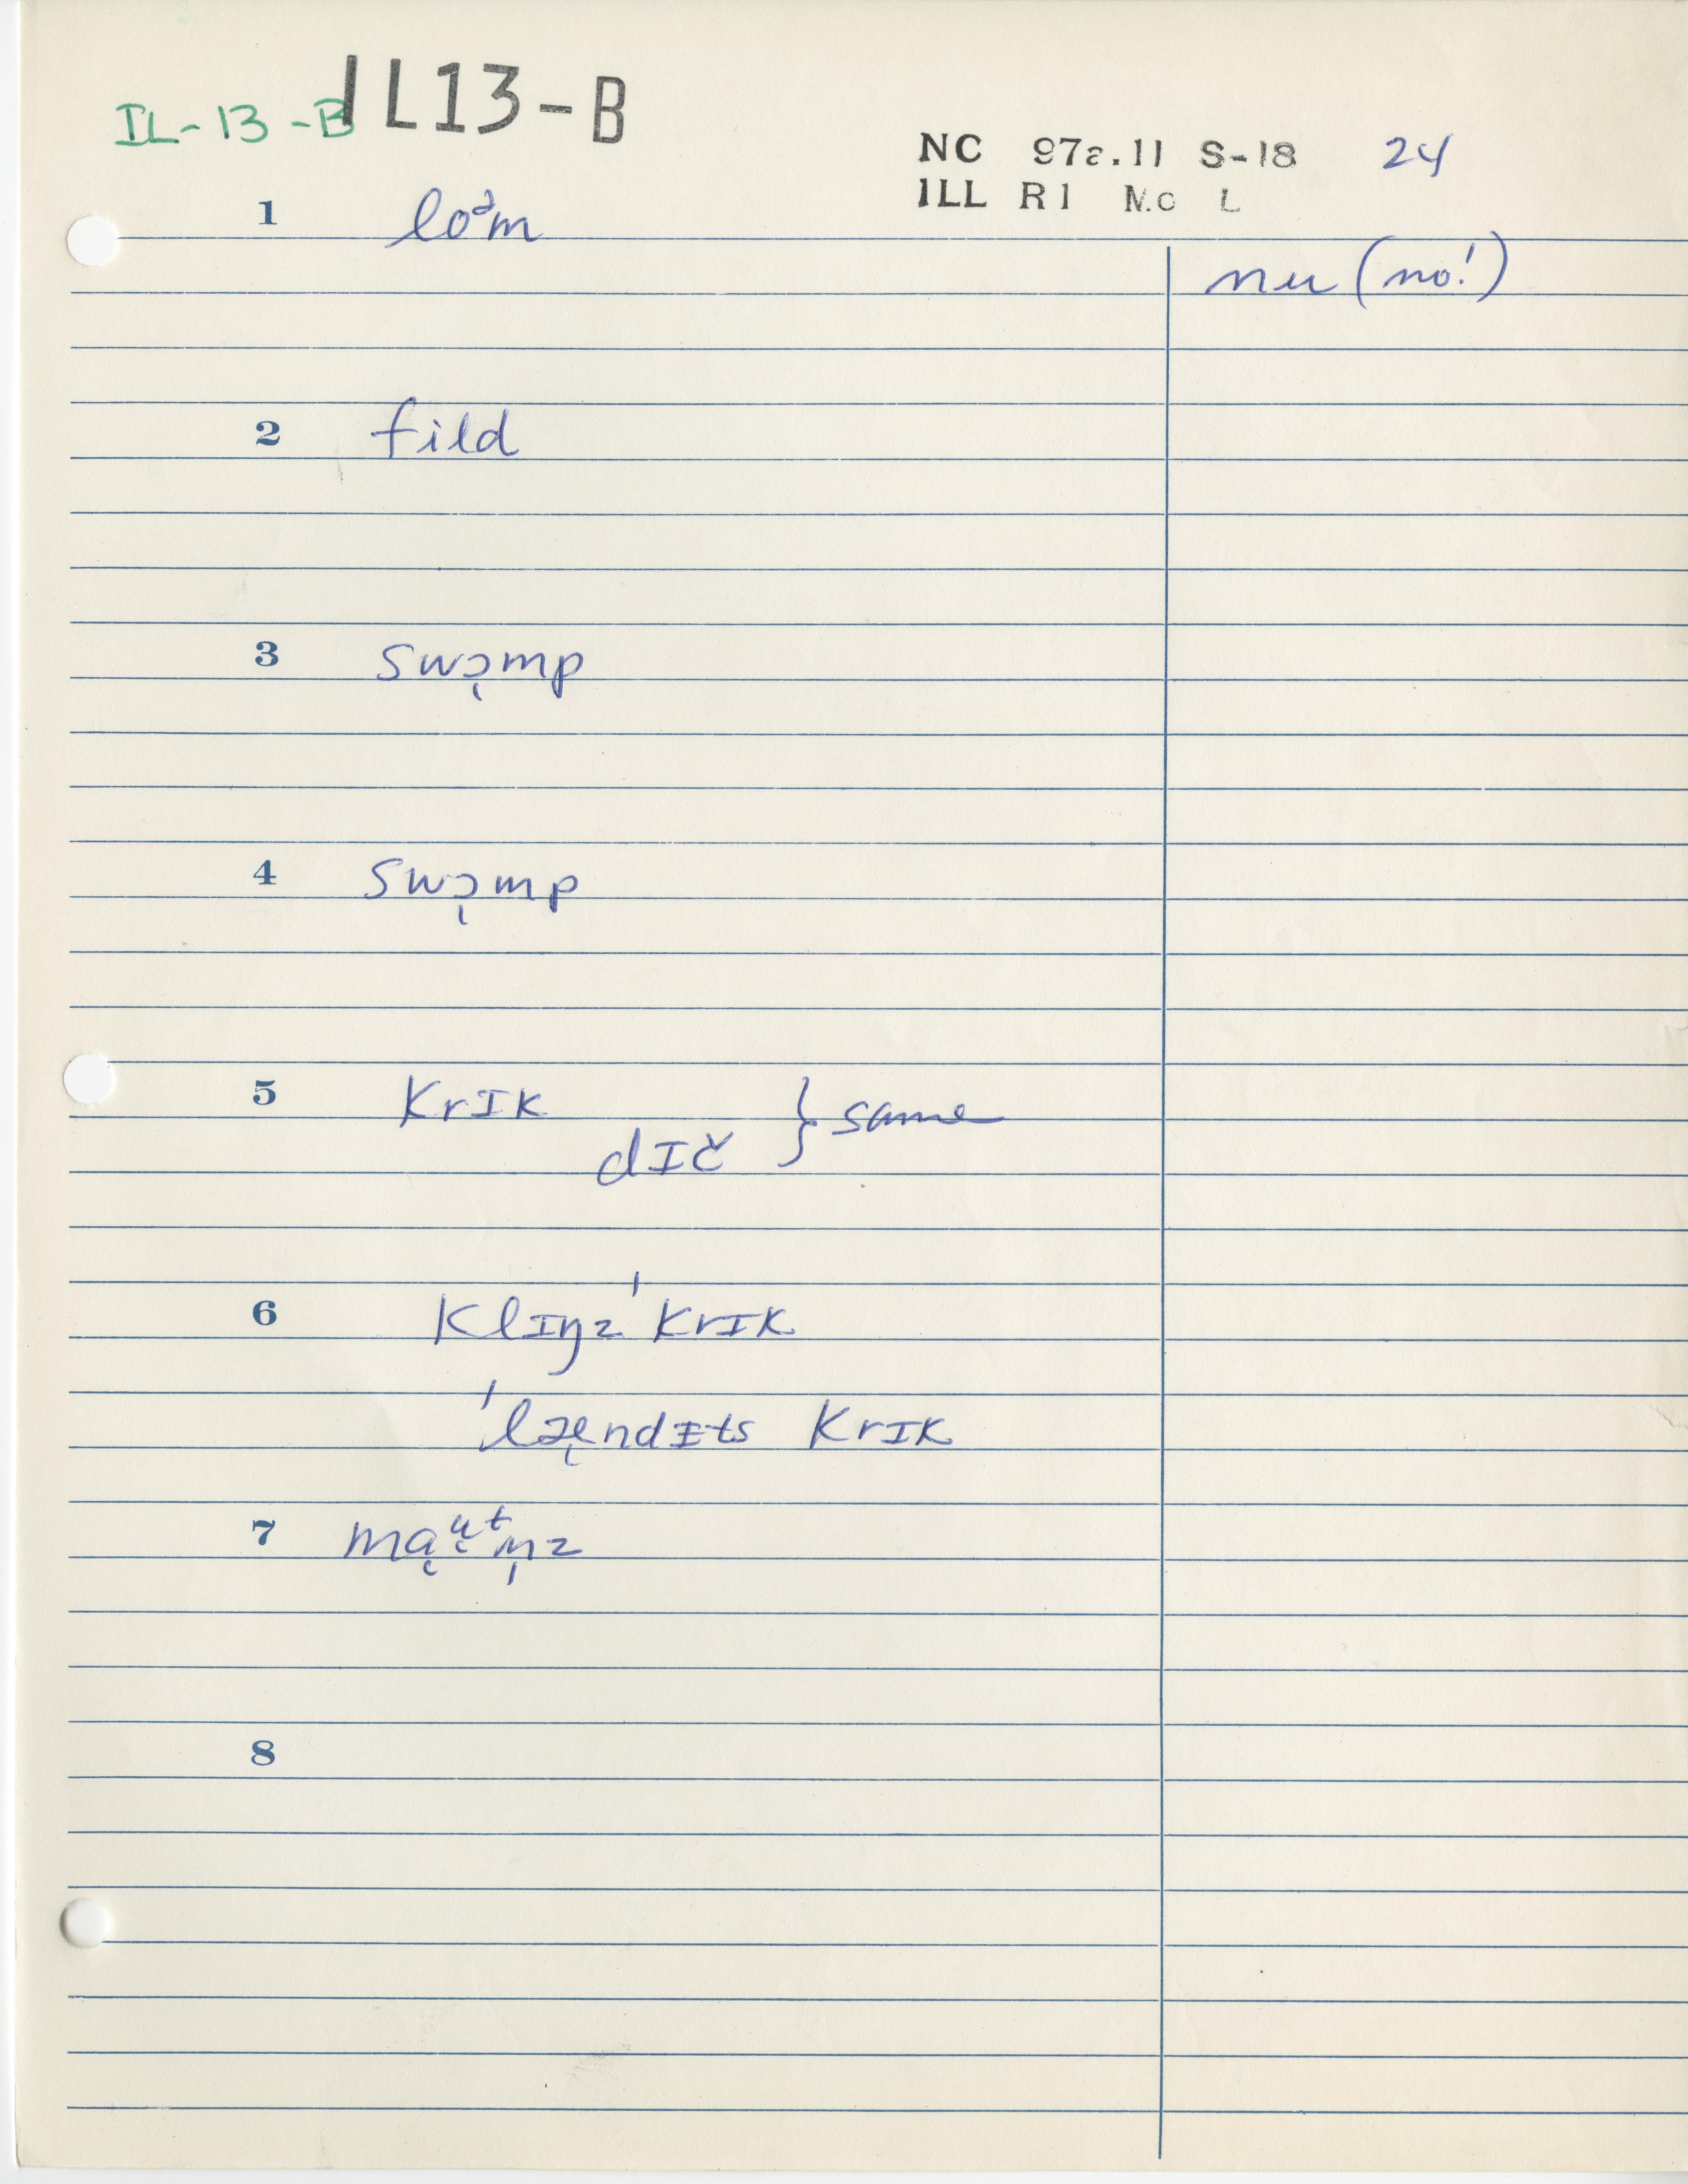 IL-13-B IL13-B
NC 97a.11 S-18 24
ILL R1 McL
1 loᵊm
nu (no!)
2 fild
3 swɔ̜mp
4 swɔ̜mp
5 krɪk
dɪč } same
6 klɪŋz ˈkrɪk
ˈlæ̜ndɪts krɪk
7 ma̜ᵘ̜ᵗn̩z
8